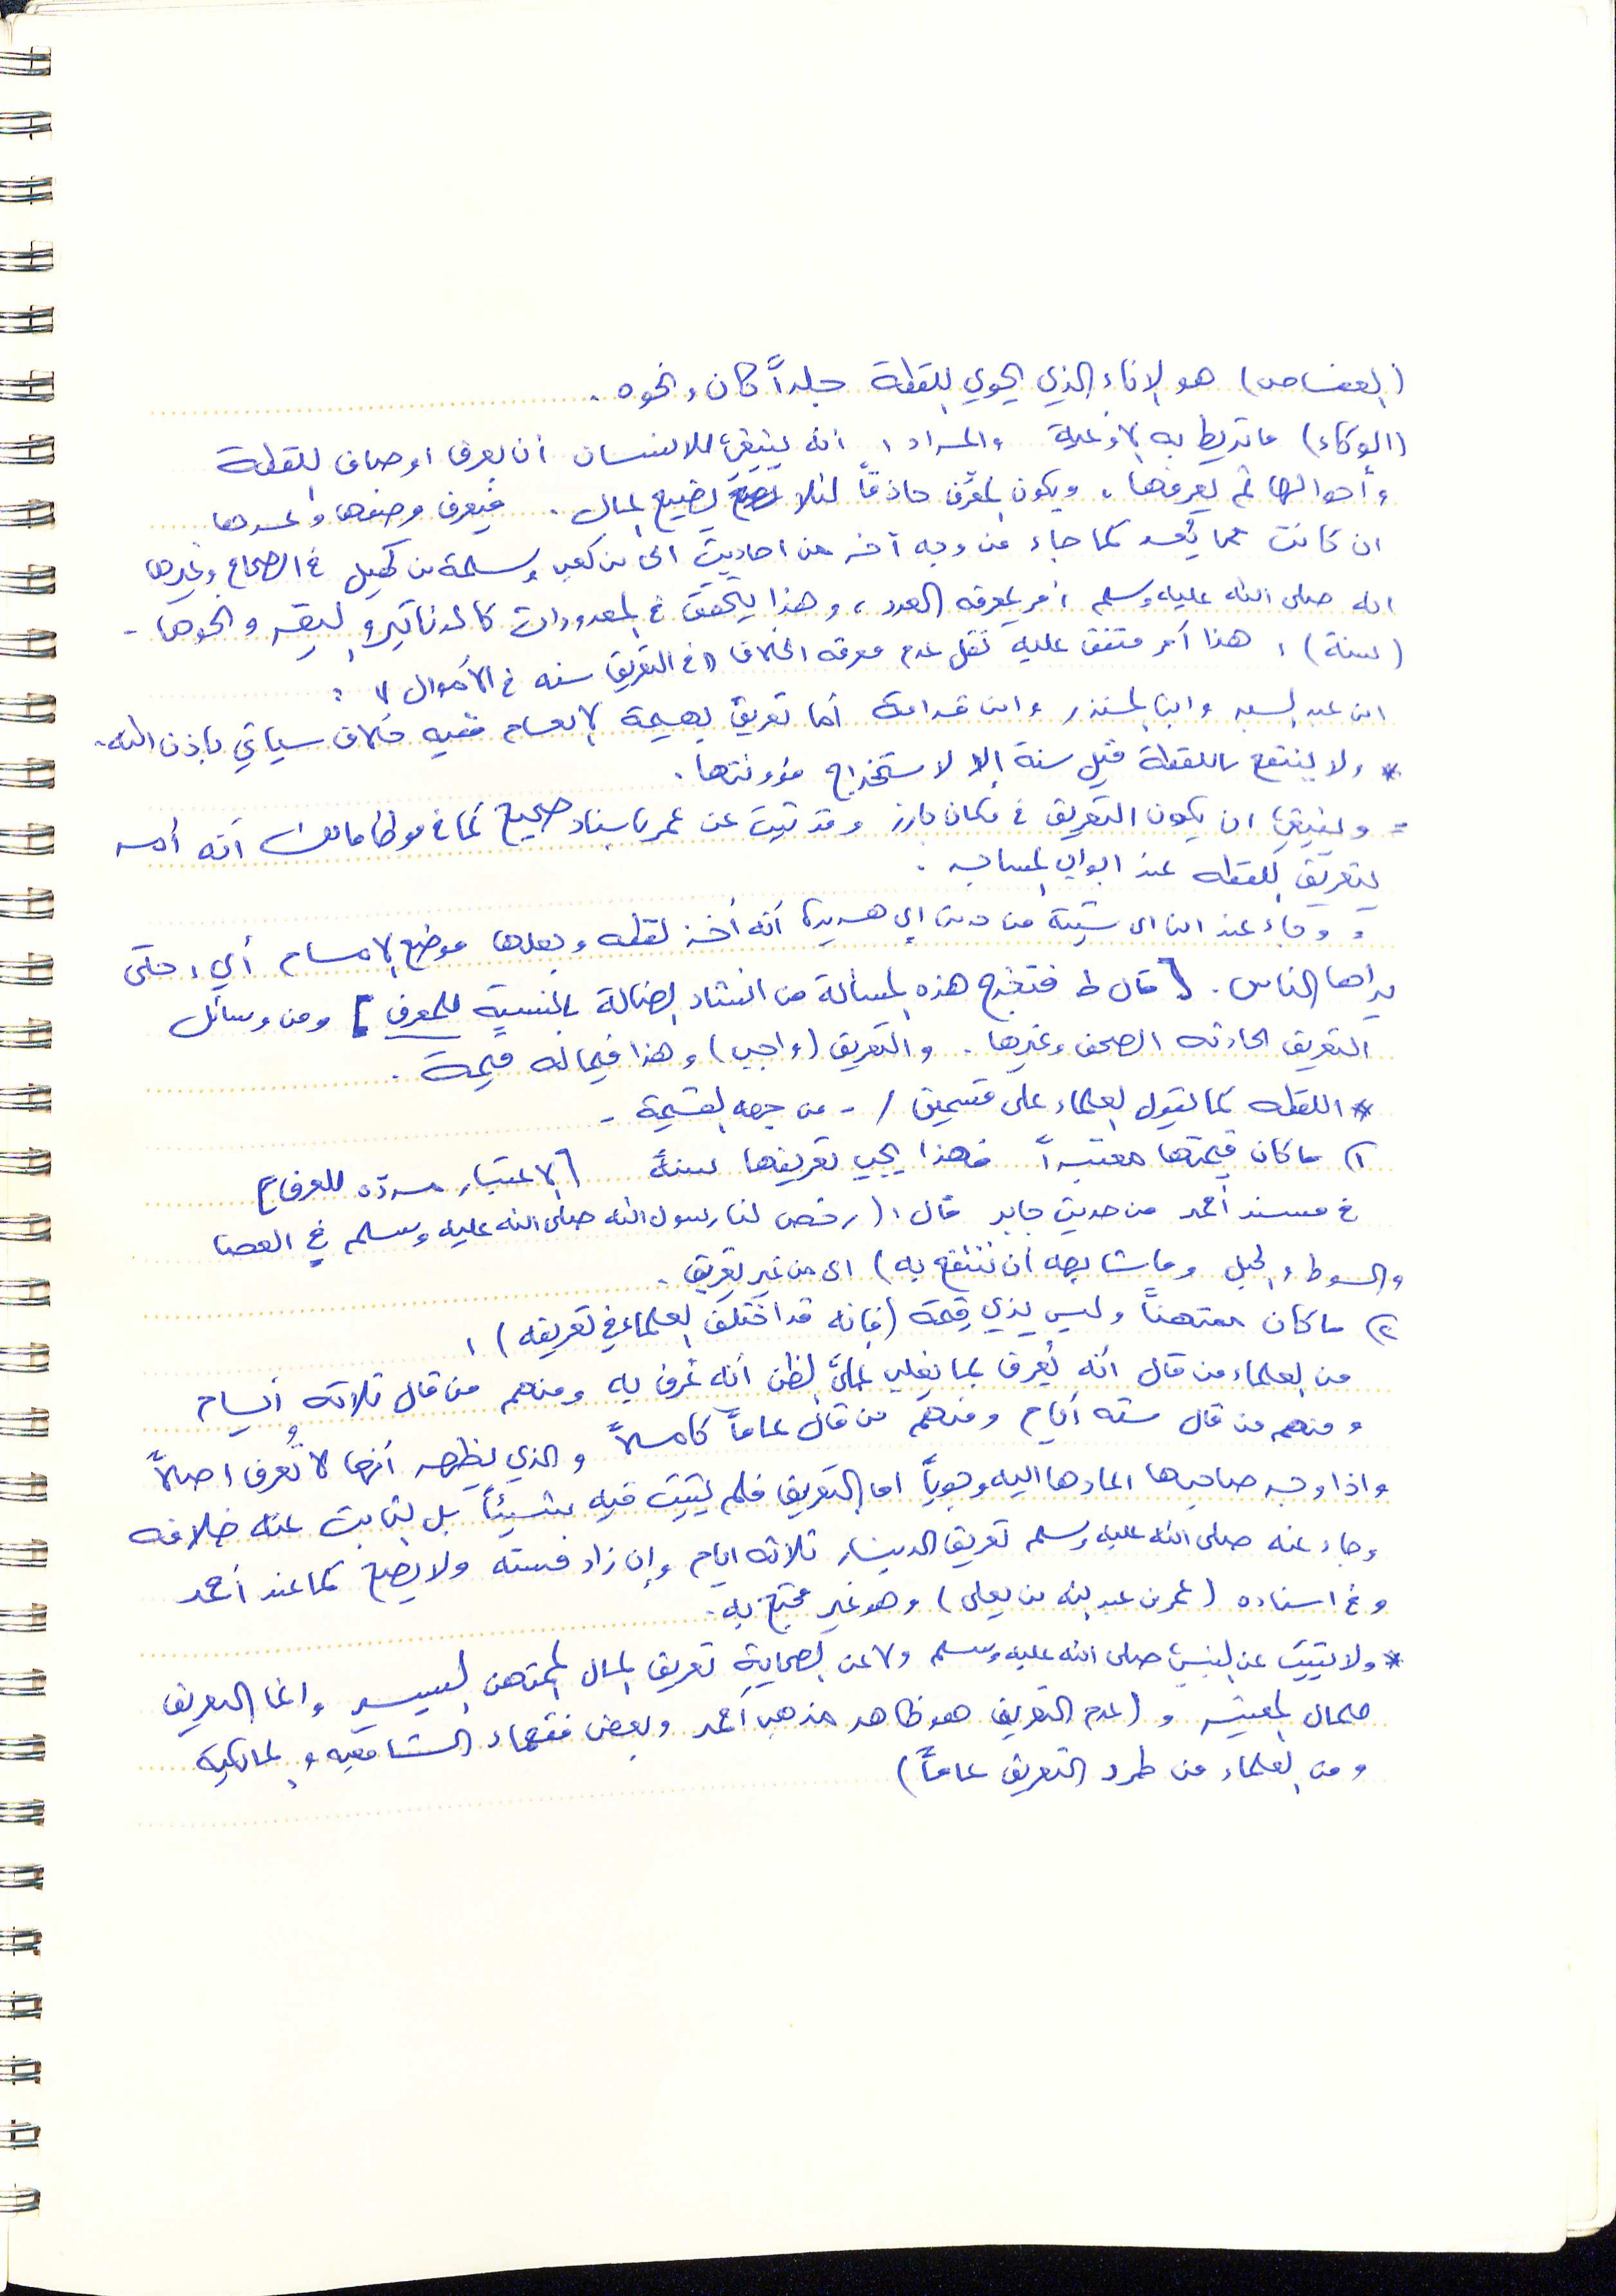 (العفاص) هو الإناء الذي يحوي اللقطة جلداً كان ونحوه .
(الوكاء) ما تربط به الأوعية والمراد : أنه ينبغي للإنسان أن يعرف اوصاف اللقطة
وأحوالها ثم يعرفها ، ويكون المعرّف حاذقاً لئلا يضيع المال . فيعرف وصفها وعددها
ان كانت مما يُعد كما جاء من وجه آخر من احاديث ابي بن كعب وسلمة بن كهيل في الصحاح وغيرها
انه صلى الله عليه وسلم أمر بمعرفه العدد ، وهذا يتحقق في المعدودات كالدنانير والبقر ونحوها -
(سنة) : هذا أمر متفق عليه نقل عدم معرفه الخلاف "في التعريف سنه في الأموال" :
ابن عبد البر وابن المنذر وابن قدامة أما تعريف بهيمة الانعام ففيه خلاف سيأتي بإذن الله -
* ولا ينتفع باللقطة قبل سنة إلا لاستخراج مؤونتها .
= وينبغي ان يكون التعريف في مكان بارز وقد ثبت عن عمر بإسناد صحيح كما في موطأ مالك أنه أمر
بتعريف اللقطه عند ابواب المساجد .
= وجاء عند ابن ابي شيبة من حديث أبي هريرة أنه أخذ لقطه وجعلها موضع الإمام أي : حتى
يراها الناس . [ قال ط فتخرج هذه المسألة من انشاد الضالة بالنسبة للمعرف ] ومن وسائل
التعريف الحادثه الصحف وغيرها . والتعريف (واجب) وهذا فيما له قيمة .
* اللقطه كما يقول العلماء على قسمين / - من جهه القيمة -
١) ما كان قيمتها معتبراً فهذا يجب تعريفها سنةً [الاعتبار مردّه للعرف]
في مسند أحمد من حديث جابر قال : (رخص لنا رسول الله صلى الله عليه وسلم في العصا
والسوط والحبل وما شابهه أن ننتفع به) اى من غير تعريف .
٢) ما كان ممتهناً وليس بذي قيمة (فإنه قد اختلف العلماء في تعريفه) :
من العلماء من قال انه يُعرف بما يغلب على الظن أنه عُرف به ومنهم من قال ثلاثه أيام
ومنهم من قال سته أيام ومنهم من قال عاماً كاملاً والذي يظهر أنها لا تُعرف اصلاً
واذا وجد صاحبها اعادها اليه وجوباً اما التعريف فلم يثبت فيه شيئاً بل الثابت عنه خلافه
وجاء عنه صلى الله عليه وسلم تعريف الدينار ثلاثه ايام وإن زاد فسته ولا يصح كما عند أحمد
وفي اسناده (عمر بن عبد الله بن يعلى) وهو غير محتج به .
* ولا يثبت عن النبي صلى الله عليه وسلم ولا عن الصحابة تعريف المال الممتهن اليسير وانما التعريف
للمال المعتبر و (عدم التعريف هو ظاهر مذهب أحمد وبعض فقهاء الشافعيه والمالكية
ومن العلماء من طرد التعريف عاماً)